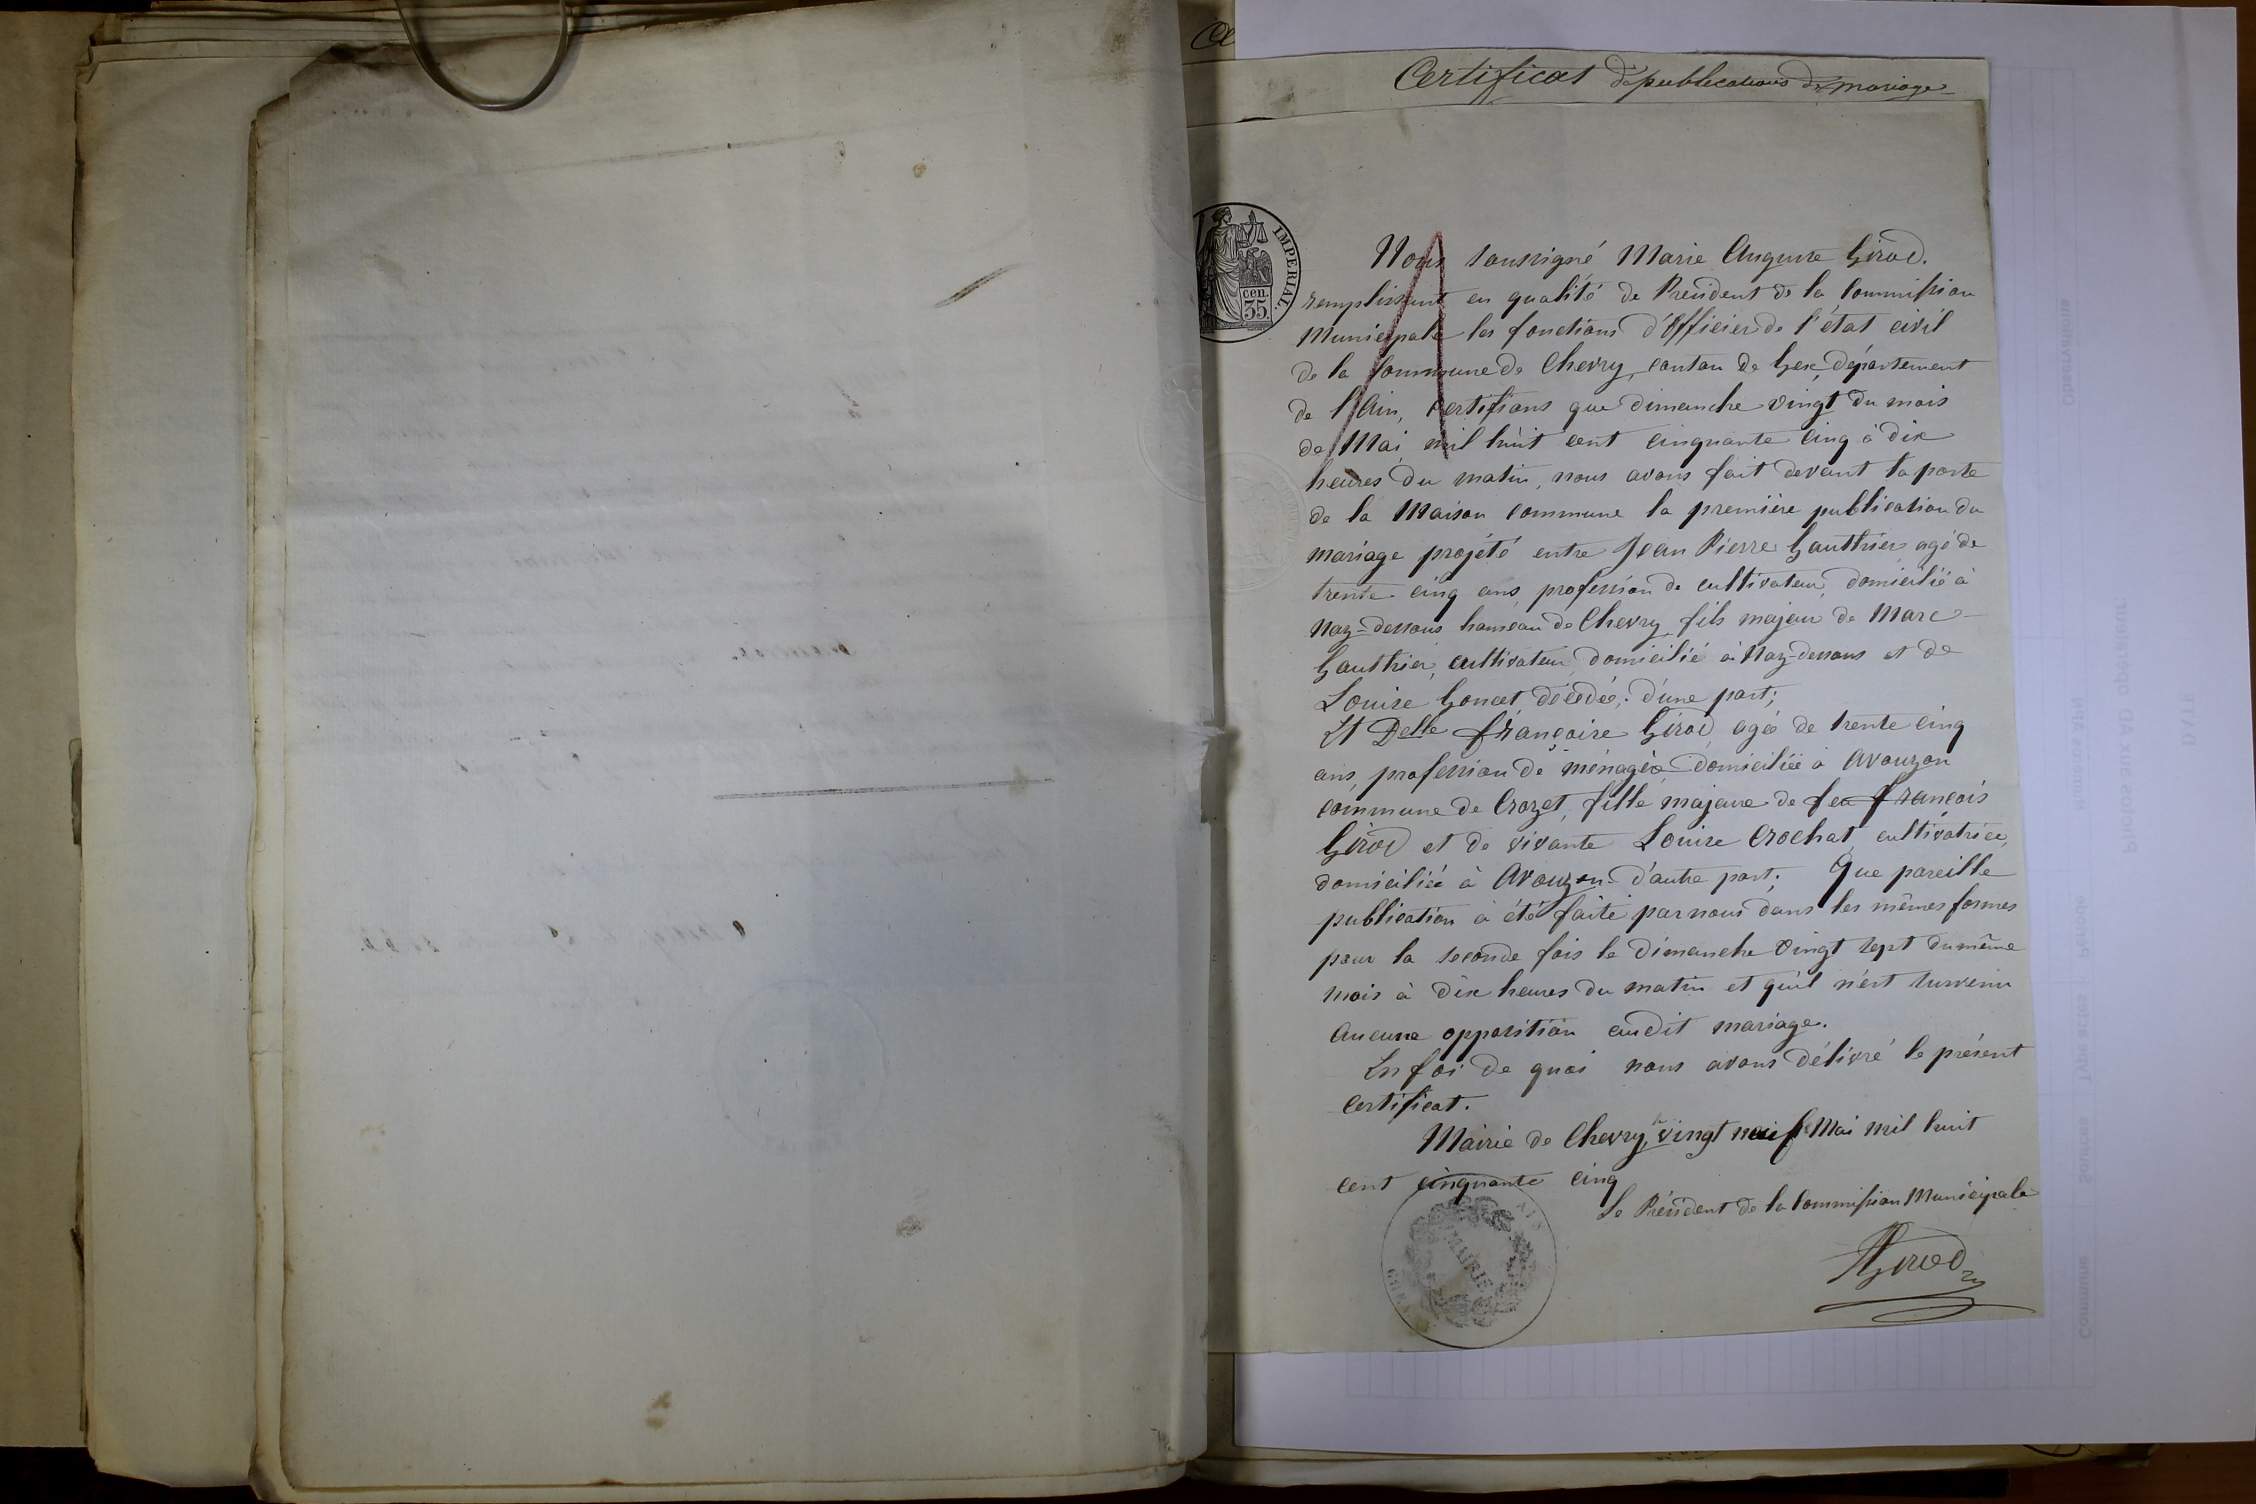 Certificat de publications de mariage
IMPERIAL.
cen.
35.
Nous soussigné Marie Auguste Girod.
remplissant en qualité de Président de la Commission
Municipale les fonctions d'Officier de l'état civil
de la Commune de Chevry, canton de Gex, département
de l'Ain, certifions que dimanche vingt du mois
de Mai, mil huit cent cinquante cinq à dix
heures du matin, nous avons fait devant la porte
de la Maison commune la première publication du
mariage projété entre Jean Pierre Gauthier agé de
trente-cinq ans, profession de cultivateur, domicilié à
Naz-dessous hameau de Chevry, fils majeur de Marc
Gauthier, cultivateur domicilié à Naz-dessous et de
Louise Goncet décédée; d'une part;
Et Delle françoise Girod, agée de trente cinq
ans, profession de ménagèr domiciliée à Avouzon
commune de Crozet, fille majeure de feu françois
Girod et de vivante Louise Crochat, cultivatrice,
domiciliée à Avouzon d'autre part; Que pareille
publication à été faite par nous dans les mêmes formes
pour la seconde fois le dimanche vingt sept du même
mois à dix heures du matin et qu'il n'est survenu
aucune opposition audit mariage.
En foi de quoi nous avons délivré le présent
certificat.
Mairie de Chevry, le vingt neuf Mai mil huit
cent cinquante cinq
Le Président de la Commission Municipale
AGirod
MAIRIE